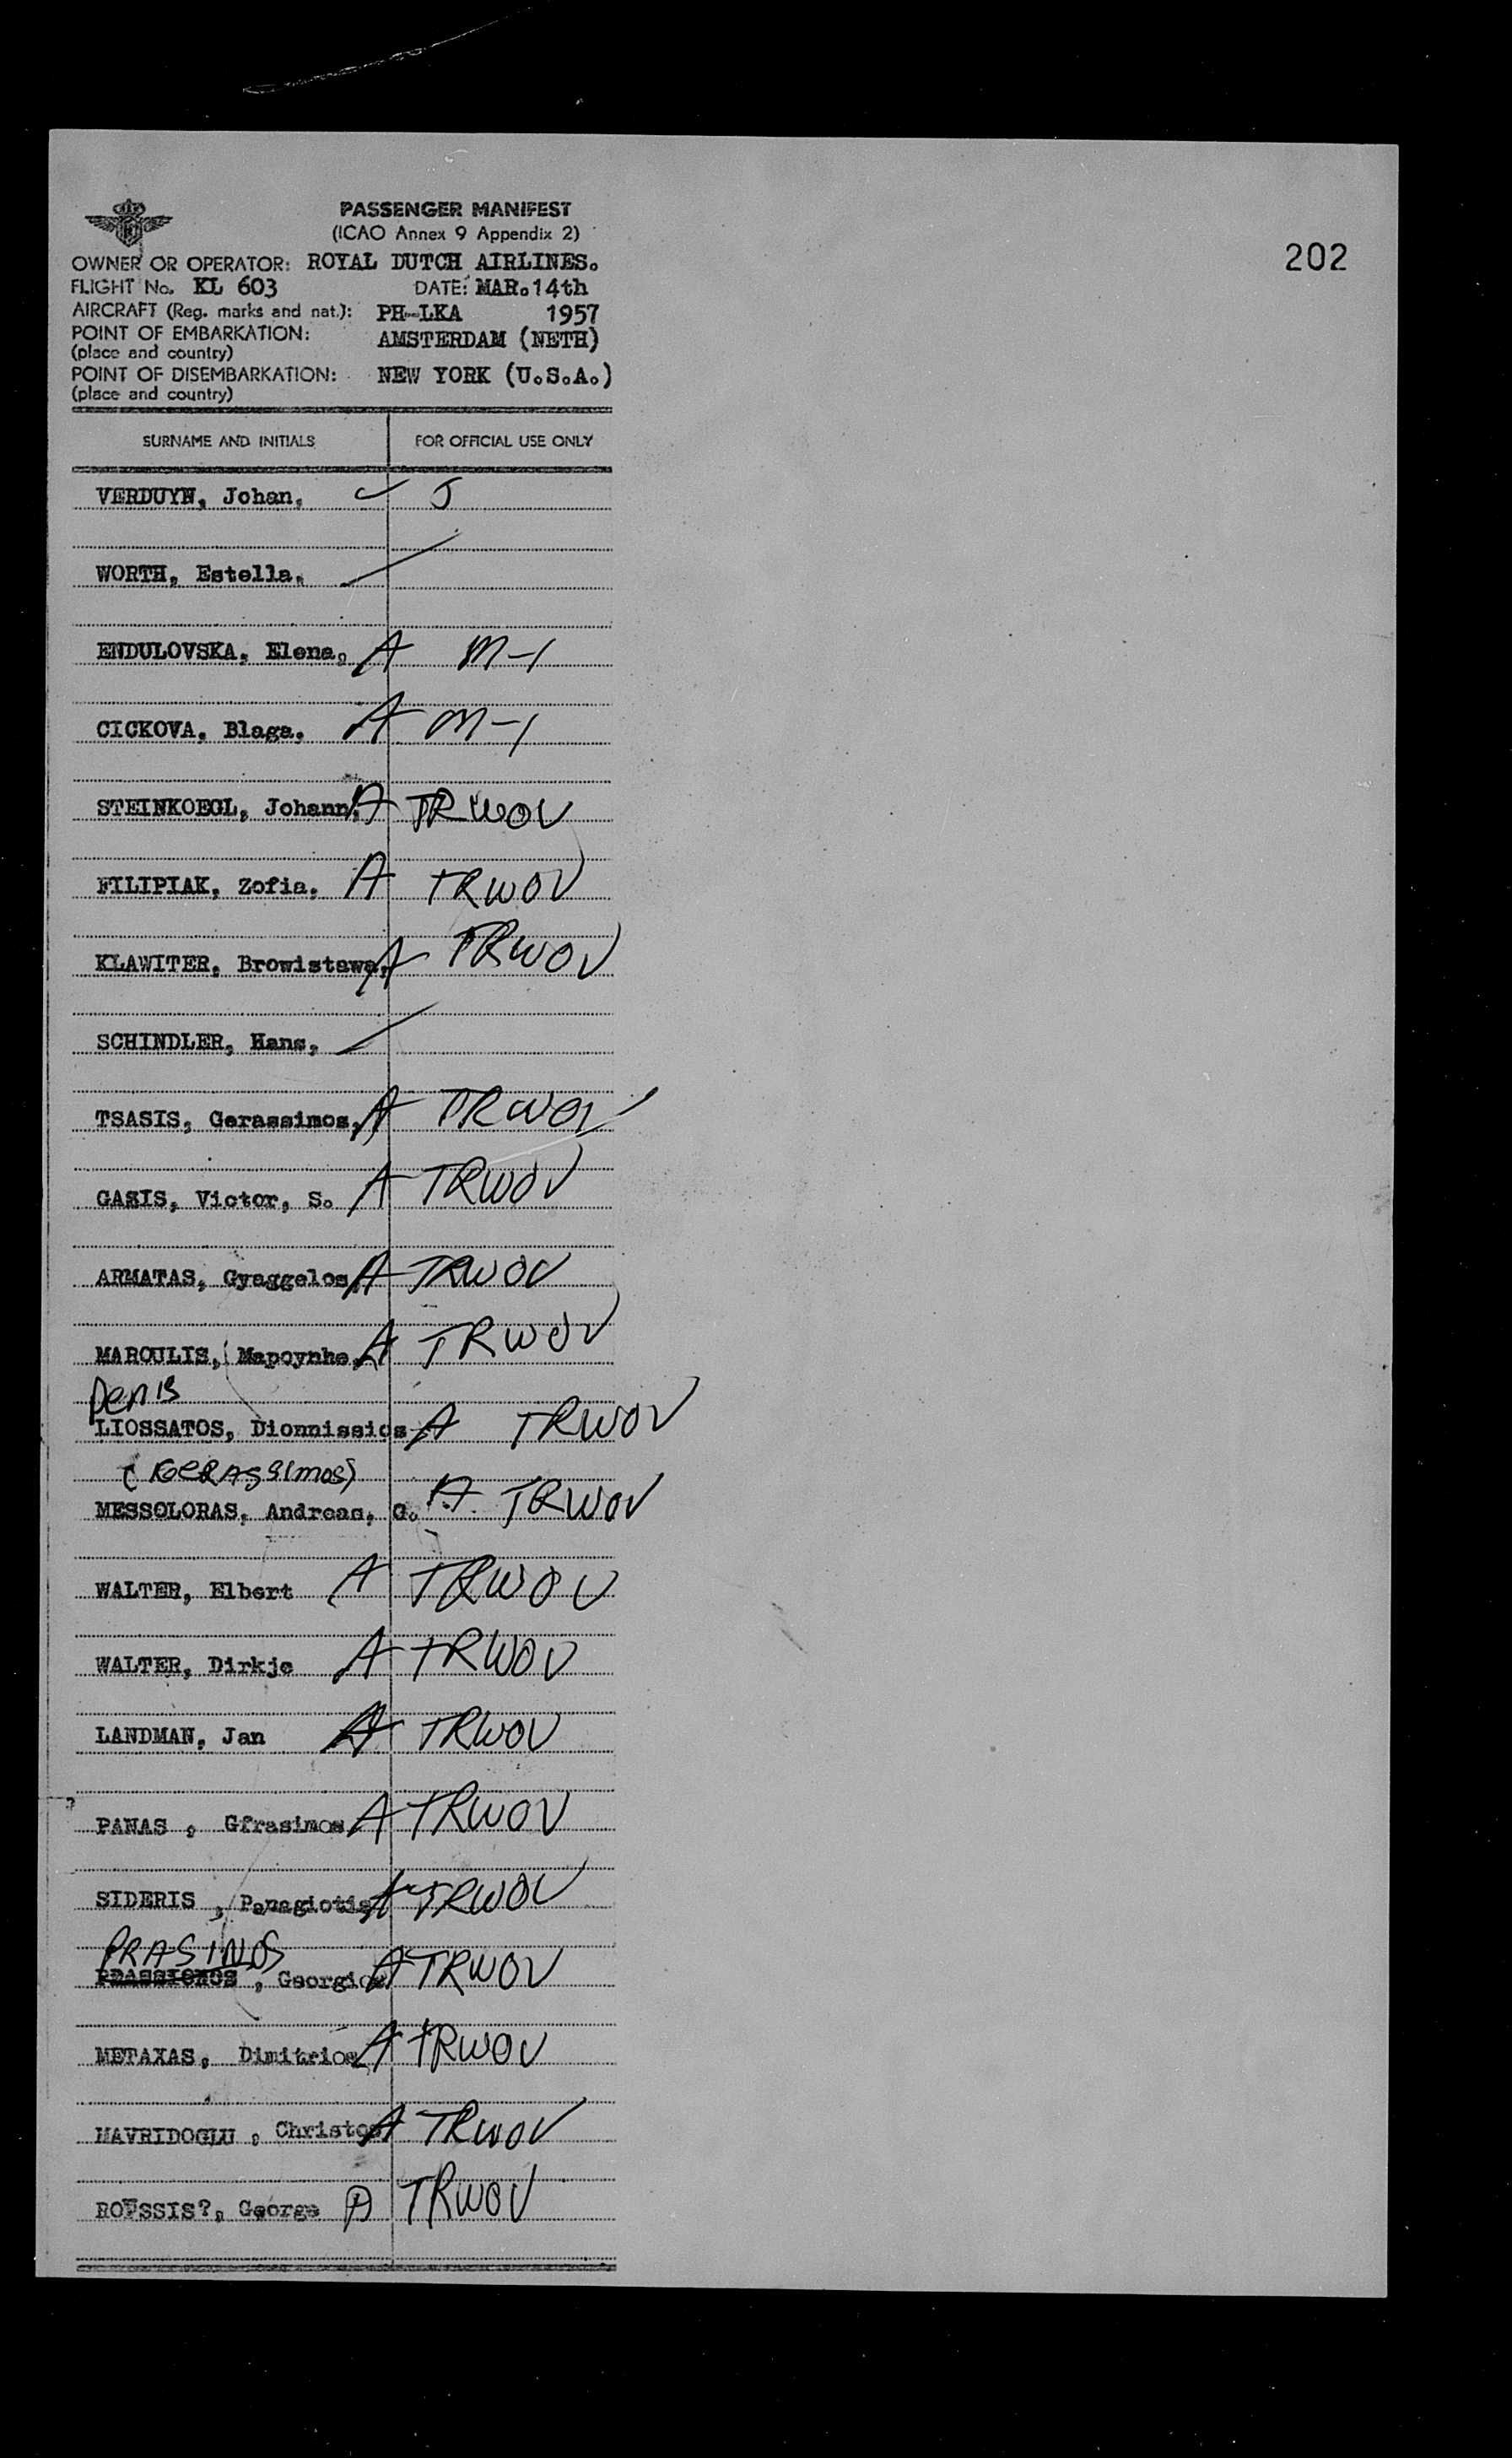 202
PASSENGER MANIFEST
(ICAO Annex 9 Appendix 2)
OWNER OR OPERATOR: ROYAL DUTCH AIRLINES.
FLIGHT No. KL 603 DATE: MAR. 14th
AIRCRAFT (Reg. marks and nat.): PH-LKA 1957
POINT OF EMBARKATION: AMSTERDAM (NETH)
(place and country)
POINT OF DISEMBARKATION: NEW YORK (U.S.A.)
(place and country)
SURNAME AND INITIALS FOR OFFICIAL USE ONLY
VERDUYN, Johan, J
WORTH, Estella,
ENDULOVSKA, Elena, A M-1
CICKOVA, Blaga, A M-1
STEINKOEGL, Johann, A TRWOV
FILIPIAK, Zofia, A TRWOV
KLAWITER, Browistawa, A TRWOV
SCHINDLER, Hans,
TSASIS, Gerassimos, A TRWOV
GASIS, Victor, S. A TRWOV
ARMATAS, Gyaggelos A TRWOV
MAROULIS, Mapoynhe, A TRWOV
Denis
LIOSSATOS, Dionnissios A TRWOV
(GERASSIMOS)
MESSOLORAS, Andreas, G. A TRWOV
WALTER, Elbert A TRWOV
WALTER, Dirkje A TRWOV
LANDMAN, Jan A TRWOV
PANAS , Gfrasimos A TRWOV
SIDERIS , Panagiotis A TRWOV
PRASINOS
, Georgios A TRWOV
METAXAS, Dimitrios A TRWOV
MAVRIDOGLU , Christos A TRWOV
ROUSSIS?, George A TRWOV